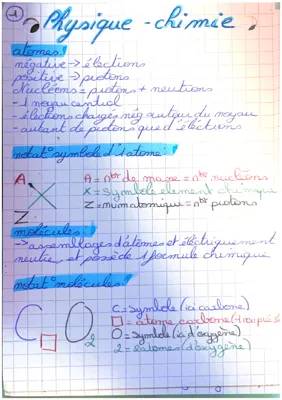 1
Physique - chimie
atomes:
négative → électrons
positive → protons
Nucléons = protons + neutrons
- 1 noyau central
- électrons chargés nég autour du noyau
- autant de protons que d'électrons
notat° symbole d'1 atome:
A
X
Z
A = nbr de masse = nbr nucléons
X = symbole élément chimique
Z = num atomique = nbr protons
molécules:
→ assemblages d'atomes et électriquement
neutre, et possède 1 formule chimique
notat° molécules:
C □ O2
C = symbole (ici carbone)
□ = atome carbone
O = symbole (ici d'oxygène)
2 = 2 atomes (d'oxygène)